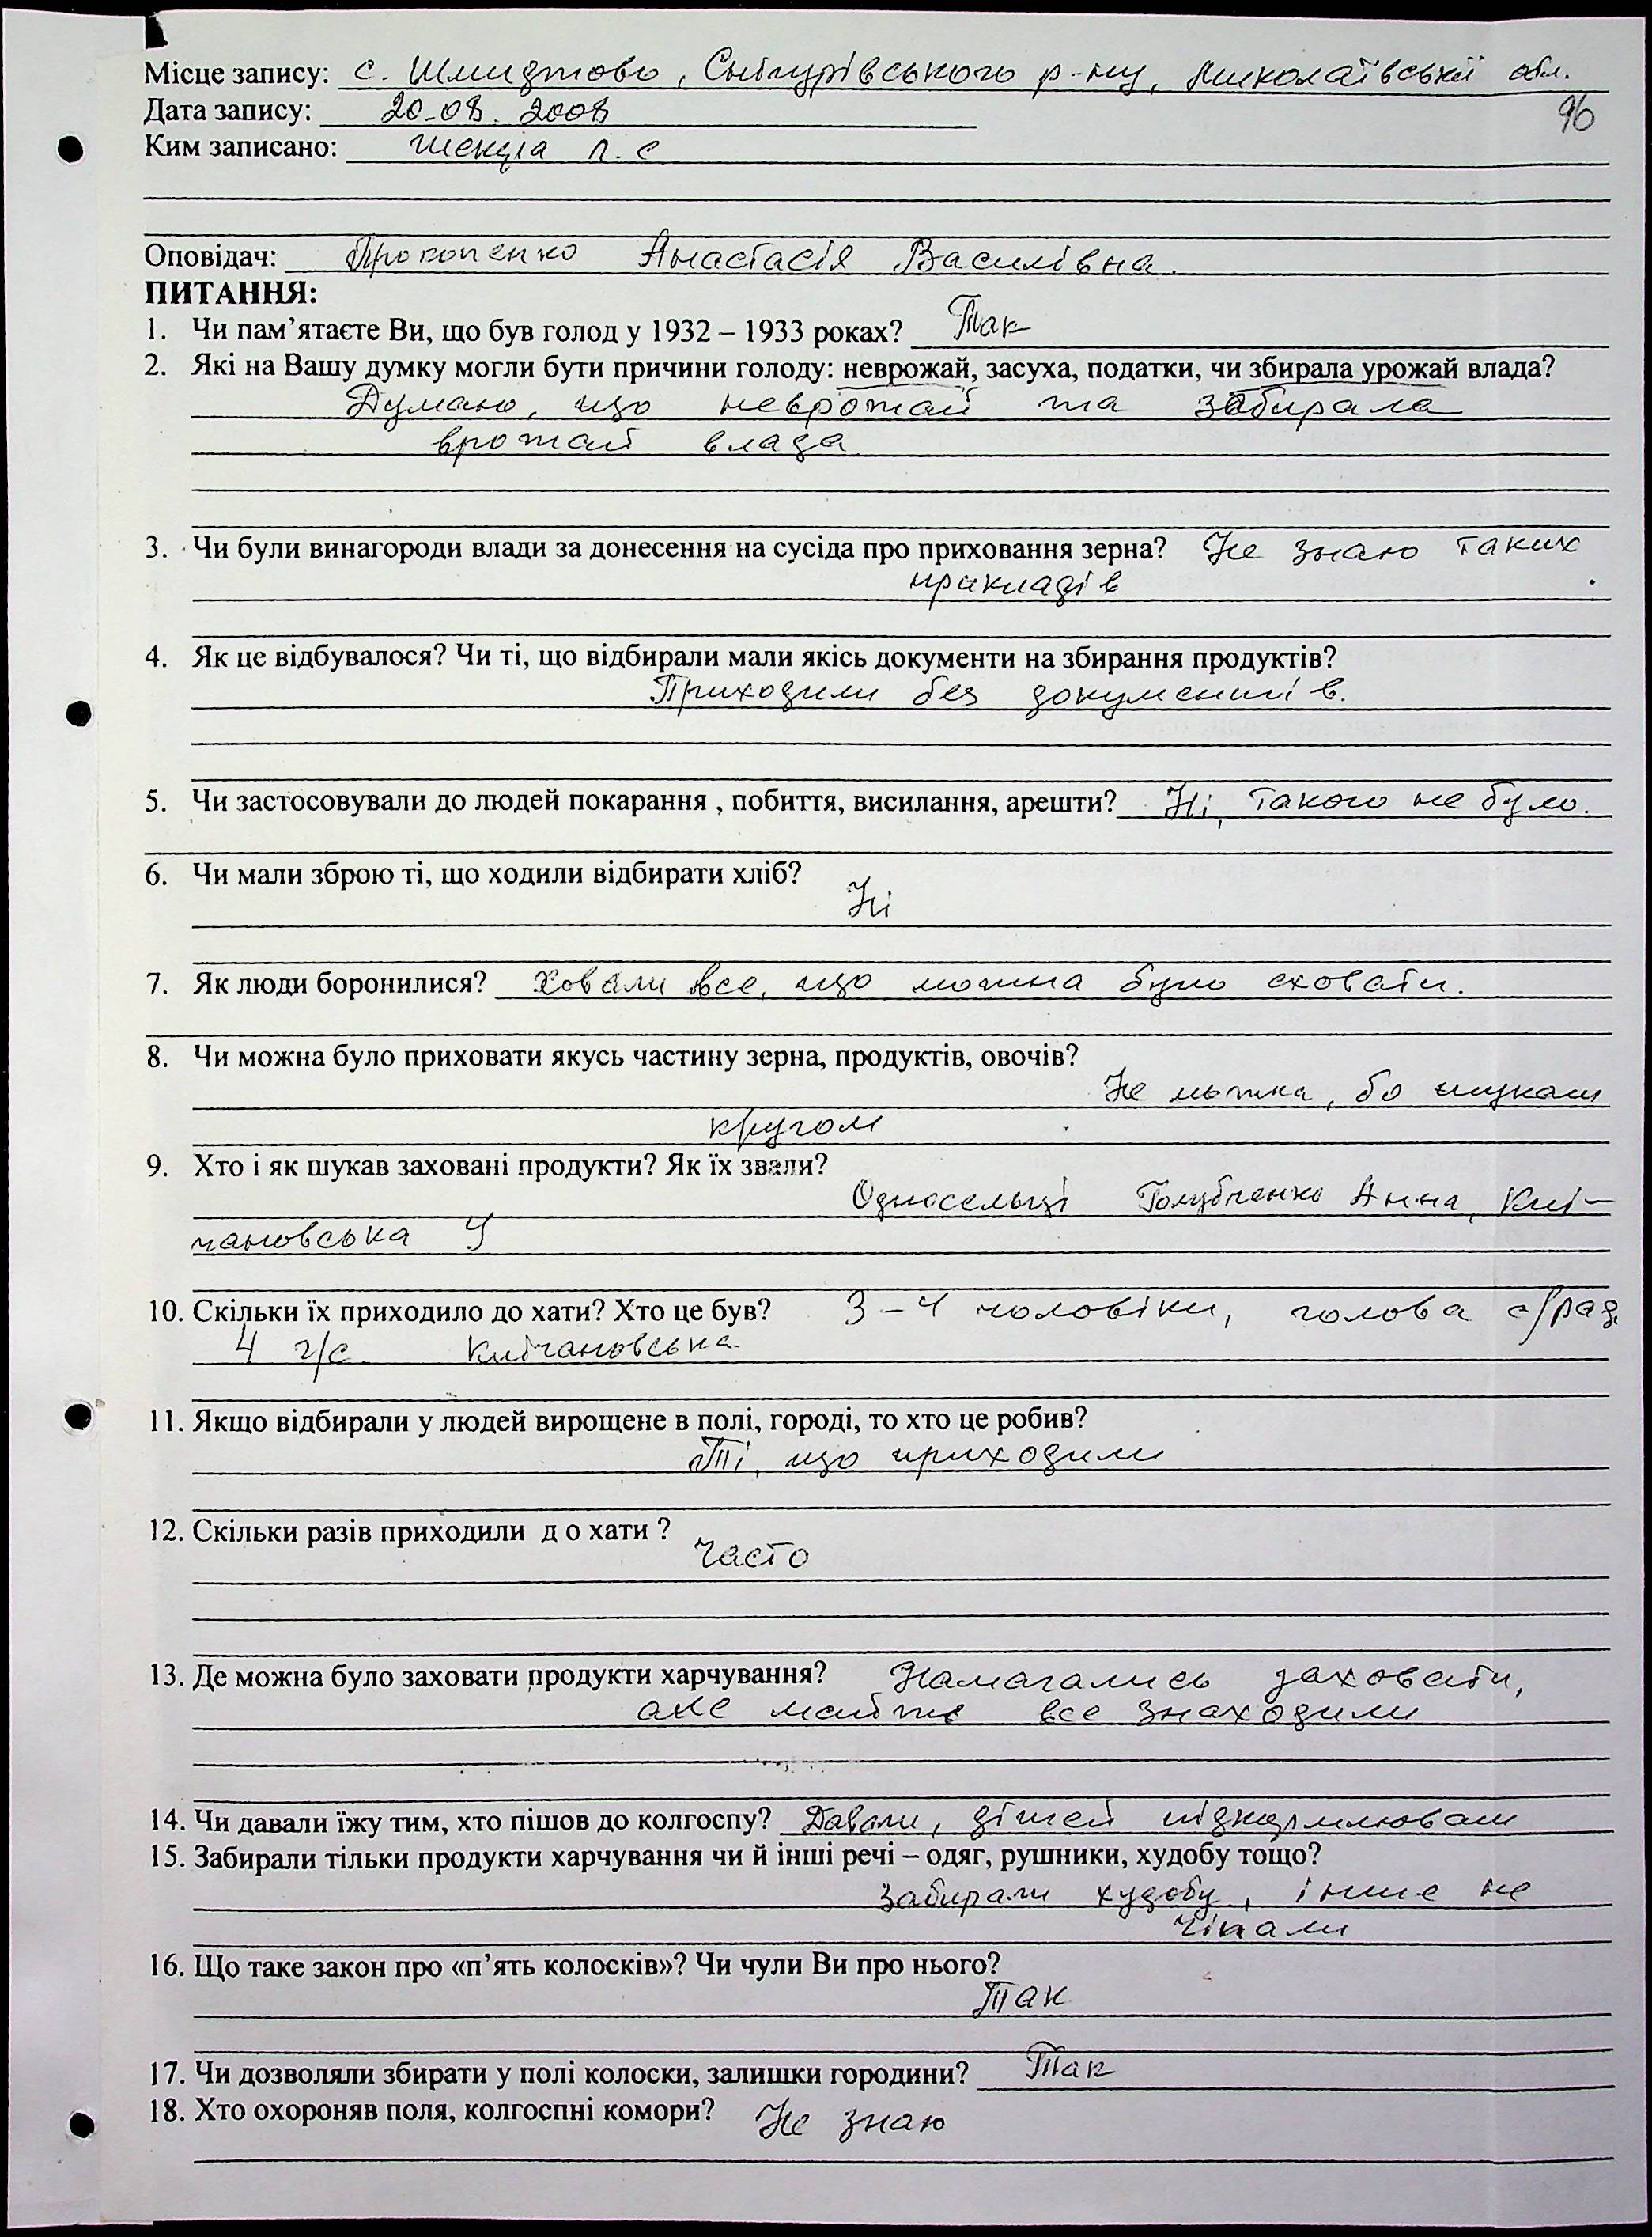 Місце запису: с. Шмидтово, Снігурівського р-ну, Миколаївської обл.
Дата запису: 20.08.2008
96
Ким записано: Л.С
Оповідач: Прокопенко Анастасія Василівна.
ПИТАННЯ:
1. Чи пам’ятаєте Ви, що був голод у 1932 – 1933 роках? Так
2. Які на Вашу думку могли бути причини голоду: неврожай, засуха, податки, чи збирала урожай влада?
Думаю, що неврожай та забирала
врожай влада
3. Чи були винагороди влади за донесення на сусіда про приховання зерна? Не знаю таких
прикладів
4. Як це відбувалося? Чи ті, що відбирали мали якісь документи на збирання продуктів?
Приходили без документів.
5. Чи застосовували до людей покарання , побиття, висилання, арешти? Ні, такого не було.
6. Чи мали зброю ті, що ходили відбирати хліб?
Ні
7. Як люди боронилися? Ховали все, що можна було сховати.
8. Чи можна було приховати якусь частину зерна, продуктів, овочів?
Не можна, бо шукали
кругом
9. Хто і як шукав заховані продукти? Як їх звали?
Односельці Голубченко Анна, Клі-
чановська У
10. Скільки їх приходило до хати? Хто це був? 3-4 чоловіки, голова с/рад.
Клічановська
11. Якщо відбирали у людей вирощене в полі, городі, то хто це робив?
Ті, що приходили
12. Скільки разів приходили д о хати ?
часто
13. Де можна було заховати продукти харчування? Намагались заховати,
але майже все знаходили
14. Чи давали їжу тим, хто пішов до колгоспу? Давали, дітей підкормлювали
15. Забирали тільки продукти харчування чи й інші речі – одяг, рушники, худобу тощо?
Забирали худобу, інше не
чіпали
16. Що таке закон про «п’ять колосків»? Чи чули Ви про нього?
Так
17. Чи дозволяли збирати у полі колоски, залишки городини? Так
18. Хто охороняв поля, колгоспні комори? Не знаю